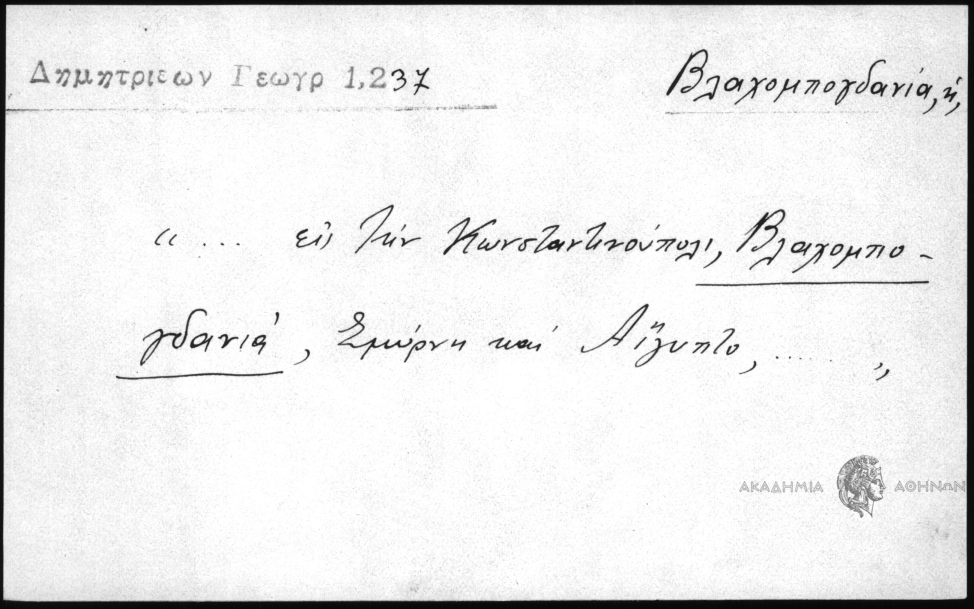 Δημητριεων Γεωγρ 1,237
Βλαχομπογδανία, ἡ,
“ ... εἰς τὴν Κωνσταντινούπολι, Βλαχομπο-
γδανιά, Σμύρνη καὶ Αἴγυπτο, ...... „
ΑΚΑΔΗΜΙΑ ΑΘΗΝΩΝ